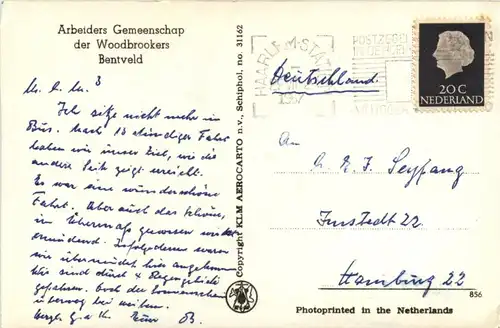 Arbeiders Gemeenschap
der Woodbrookers
Bentveld
Ich sitze nicht mehr im
Bus. Nach 13 stündiger Fahrt
haben wir unser Ziel, wie die
andere Seite zeigt erreicht.
Es war eine wunderschöne
Fahrt. Aber auch das Schöne,
im Übermaß genossen wirkt
ermüdend. Infolgedessen waren
wir übermüdet hier angekommen
Wir sind durch 4 Regengebiete
gefahren. Doch der Sonnenschein
überwog bei weitem.
Copyright KLM AEROCARTO n.v., Schiphol, no. 31162
HAARLEM-STATION
1957
POSTZEGELS
20 C
NEDERLAND
Deutschland
An
Seyfang
Imstedt 22
Hamburg 22
856
Photoprinted in the Netherlands